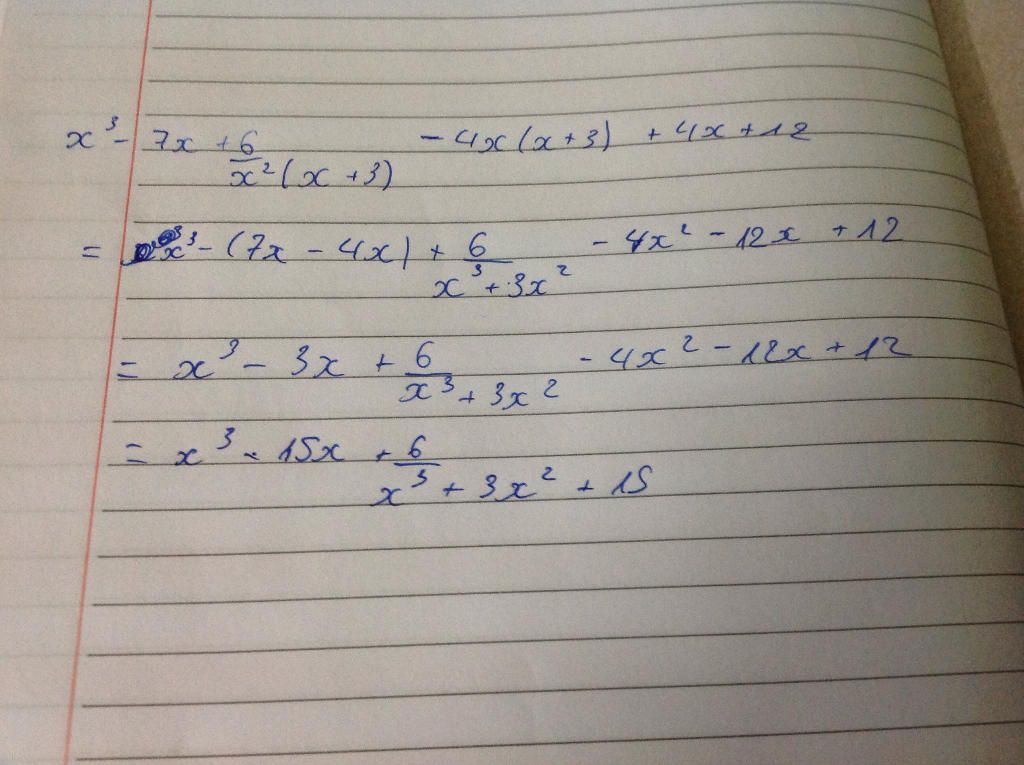 x³ - 7x + 6/(x²(x+3)) - 4x(x+3) + 4x + 12
= x³ - (7x - 4x) + 6/(x³ + 3x²) - 4x² - 12x + 12
= x³ - 3x + 6/(x³ + 3x²) - 4x² - 12x + 12
= x³ - 15x + 6/(x³ + 3x² + 15)